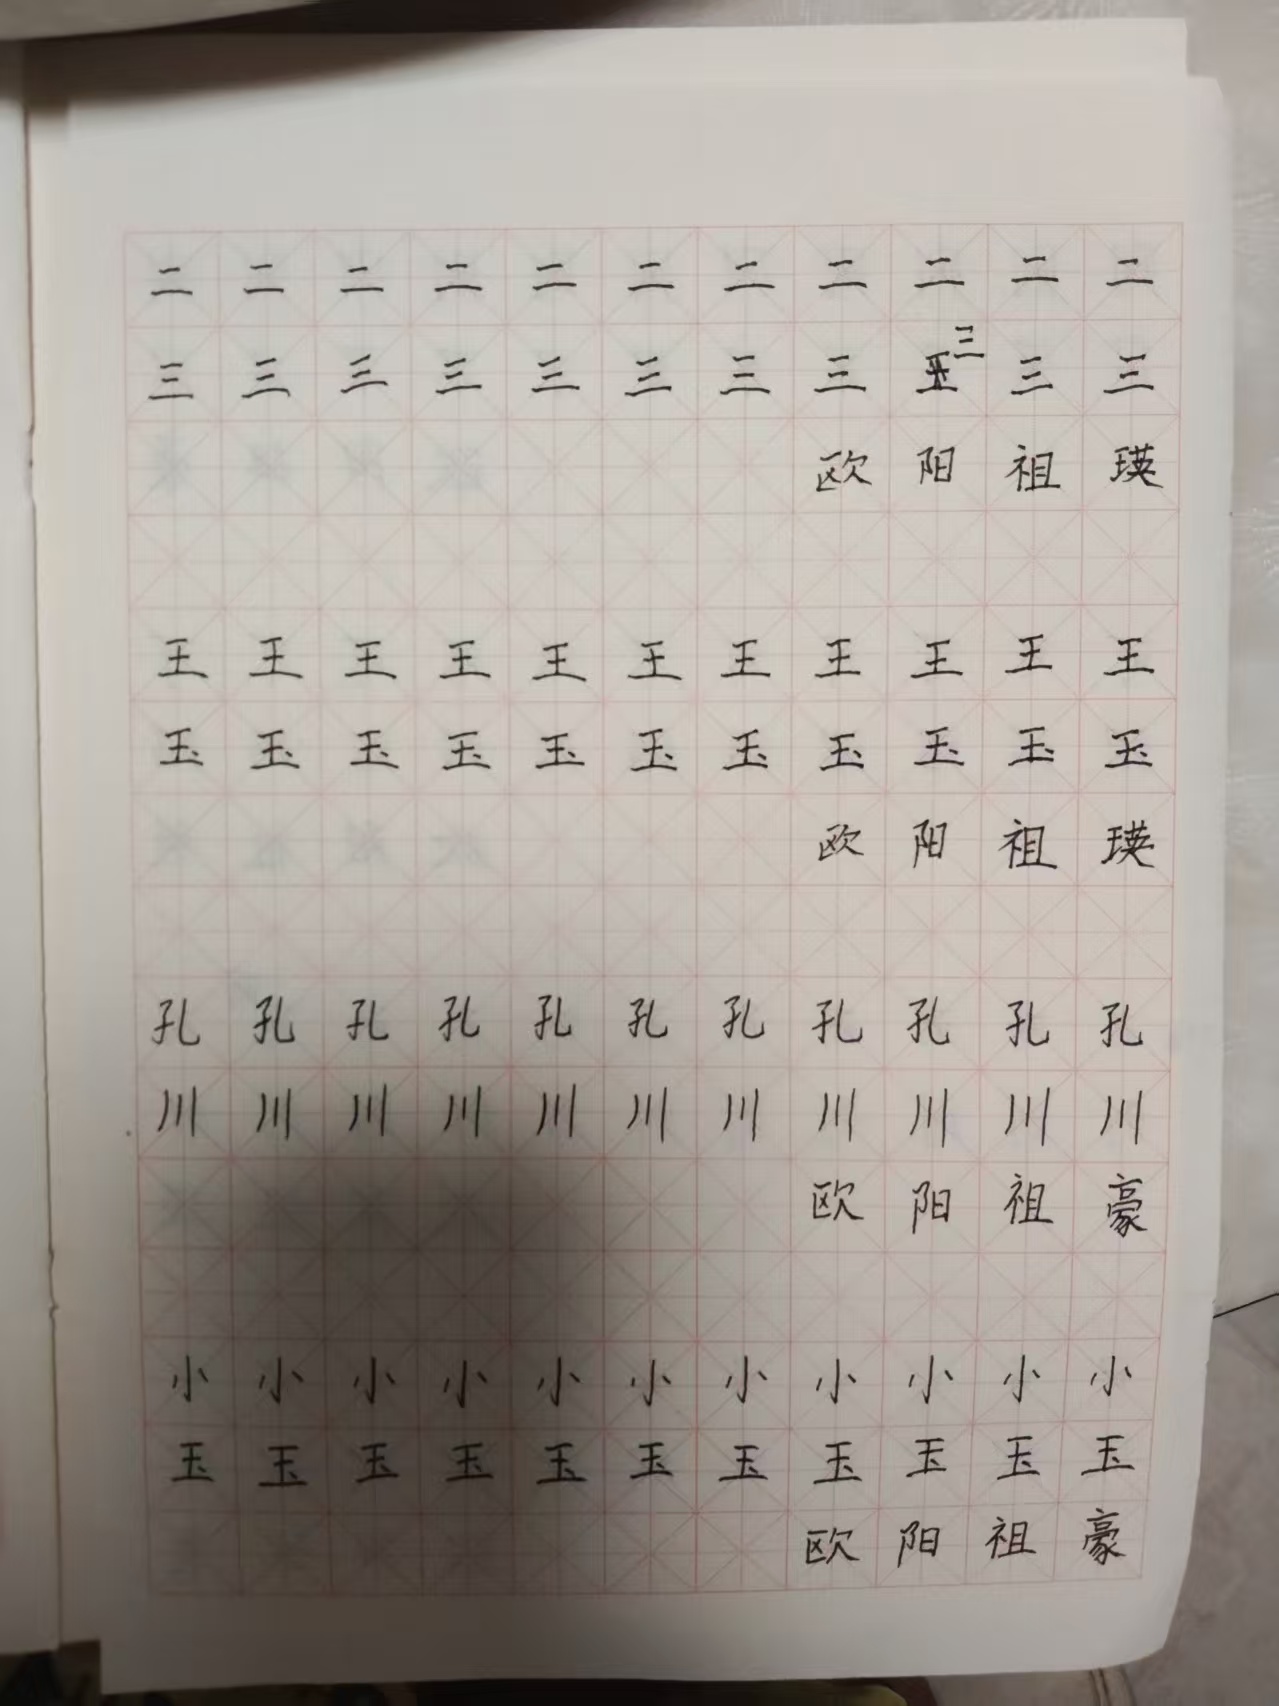 二二二二二二二二二二二
三三三三三三三三三三三
欧阳祖瑛
王王王王王王王王王王王
玉玉玉玉玉玉玉玉玉玉玉
欧阳祖瑛
孔孔孔孔孔孔孔孔孔孔孔
川川川川川川川川川川川
欧阳祖豪
小小小小小小小小小小小
玉玉玉玉玉玉玉玉玉玉玉
欧阳祖豪